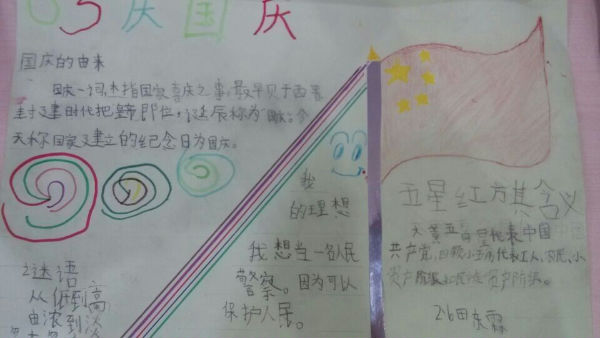 庆国庆
国庆的由来
国庆一词,本指国家喜庆之事,最早见于西晋
封建时代把皇帝即位,诞辰称为"国庆",今
天称国家建立的纪念日为国庆。
谜语
从低到高
由浓到淡
我
的理想
我想当一名人民
警察。因为可以
保护人民。
五星红方其含义
大黄五角星代表中国
共产党,四颗小五角代表工人,农民,小
资产阶级和民族资产阶级。
2.6田东霖